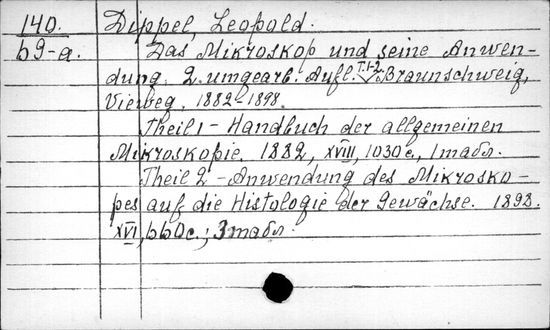 140. Dippel, Leopold.
b9-a. Das Mikroskop und seine Anwen-
dung. 2. umgearb. Aufl. T.1-2. Braunschweig,
Vieweg. 1882-1898.
Theil 1 - Handbuch der allgemeinen
Mikroskopie. 1882, XVIII, 1030 с., 1 табл.
Theil 2 - Anwendung des Mikrosko-
pes auf die Histologie der Gewächse. 1898.
XVI, 660 с.; 3 табл.